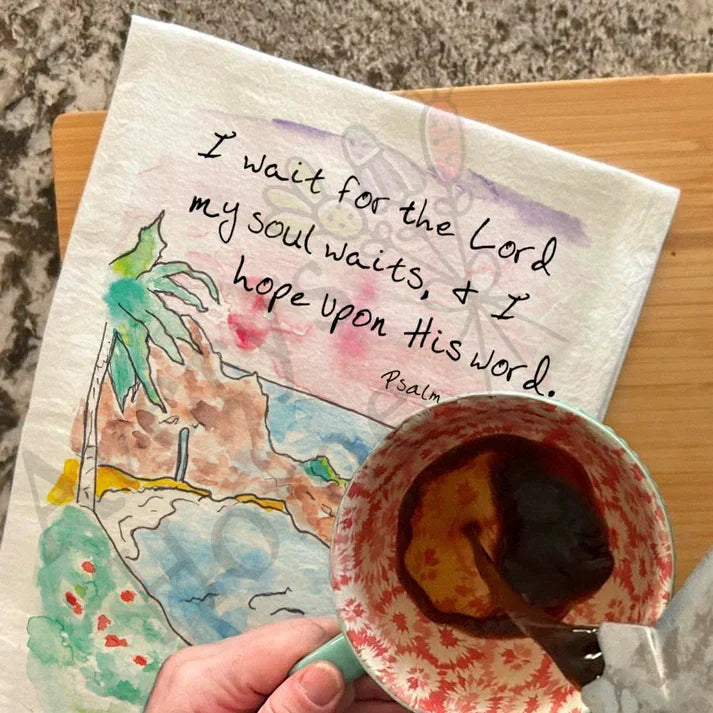 I wait for the Lord
my soul waits, & I
hope upon His word.
Psalm